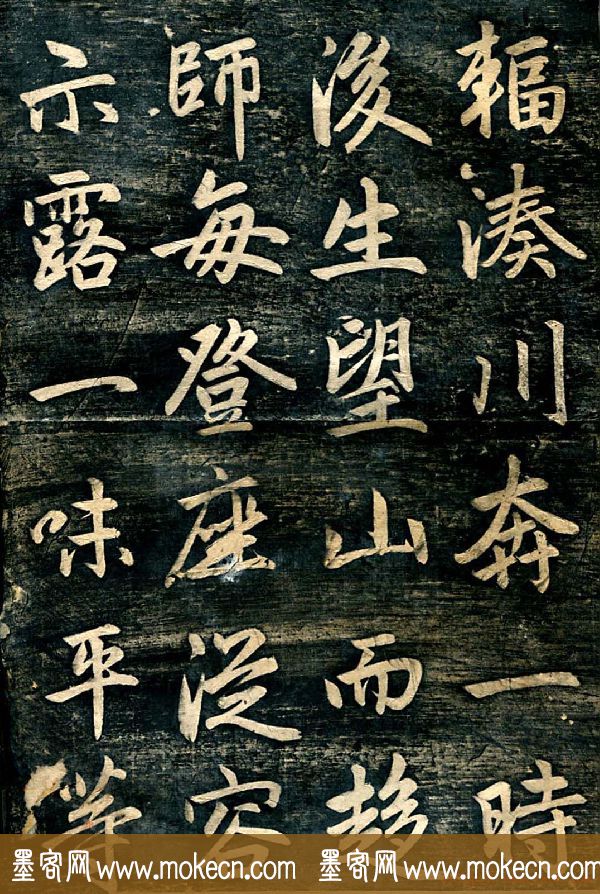 輻湊川奔一時
後生望山而趍
師每登座從容
示露一味平等
墨客网 www.mokecn.com 墨客网 www.mokecn.com